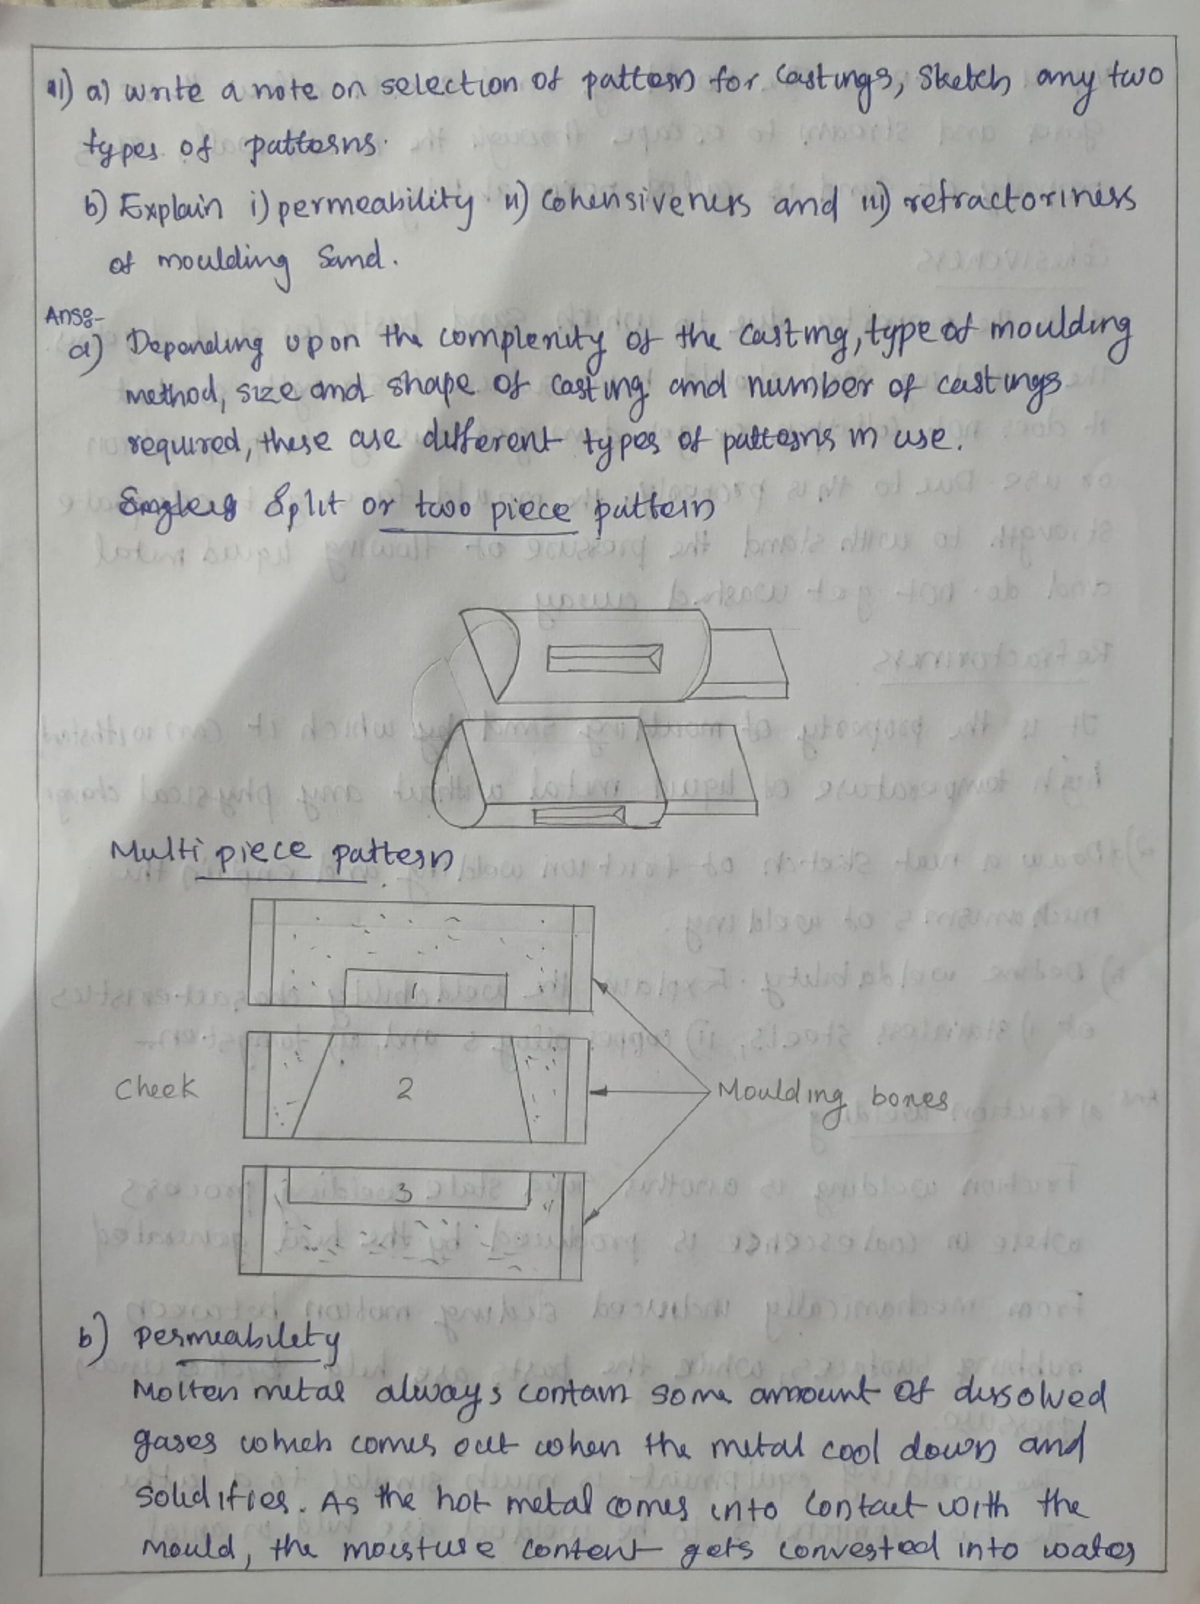 11) a) Write a note on selection of pattern for castings, Sketch any two
types of patterns.
b) Explain i) permeability ii) Cohensiveness and iii) refractoriness
of moulding Sand.
Ans:-
a) Depending upon the complexity of the casting, type of moulding
method, size and shape of casting and number of castings
required, these are different types of patterns in use.
Split or two piece pattern
Multi piece pattern
1
Cheek
2
Moulding boxes
3
b) Permeability
Molten metal always contain some amount of dissolved
gases which comes out when the metal cool down and
solidifies. As the hot metal comes into contact with the
mould, the moisture content gets converted into water